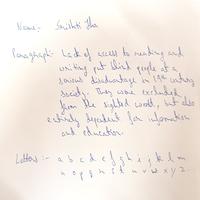 Name:- Smishti Jha
Paragraph:- Lack of access to reading and
writing put blind people at a
serious disadvantage in 19th century
society. They were excluded
from the sighted world, but also
entirely dependent for information
and education.
Letters:- a b c d e f g h i j k l m
n o p q r s t u v w x y z.